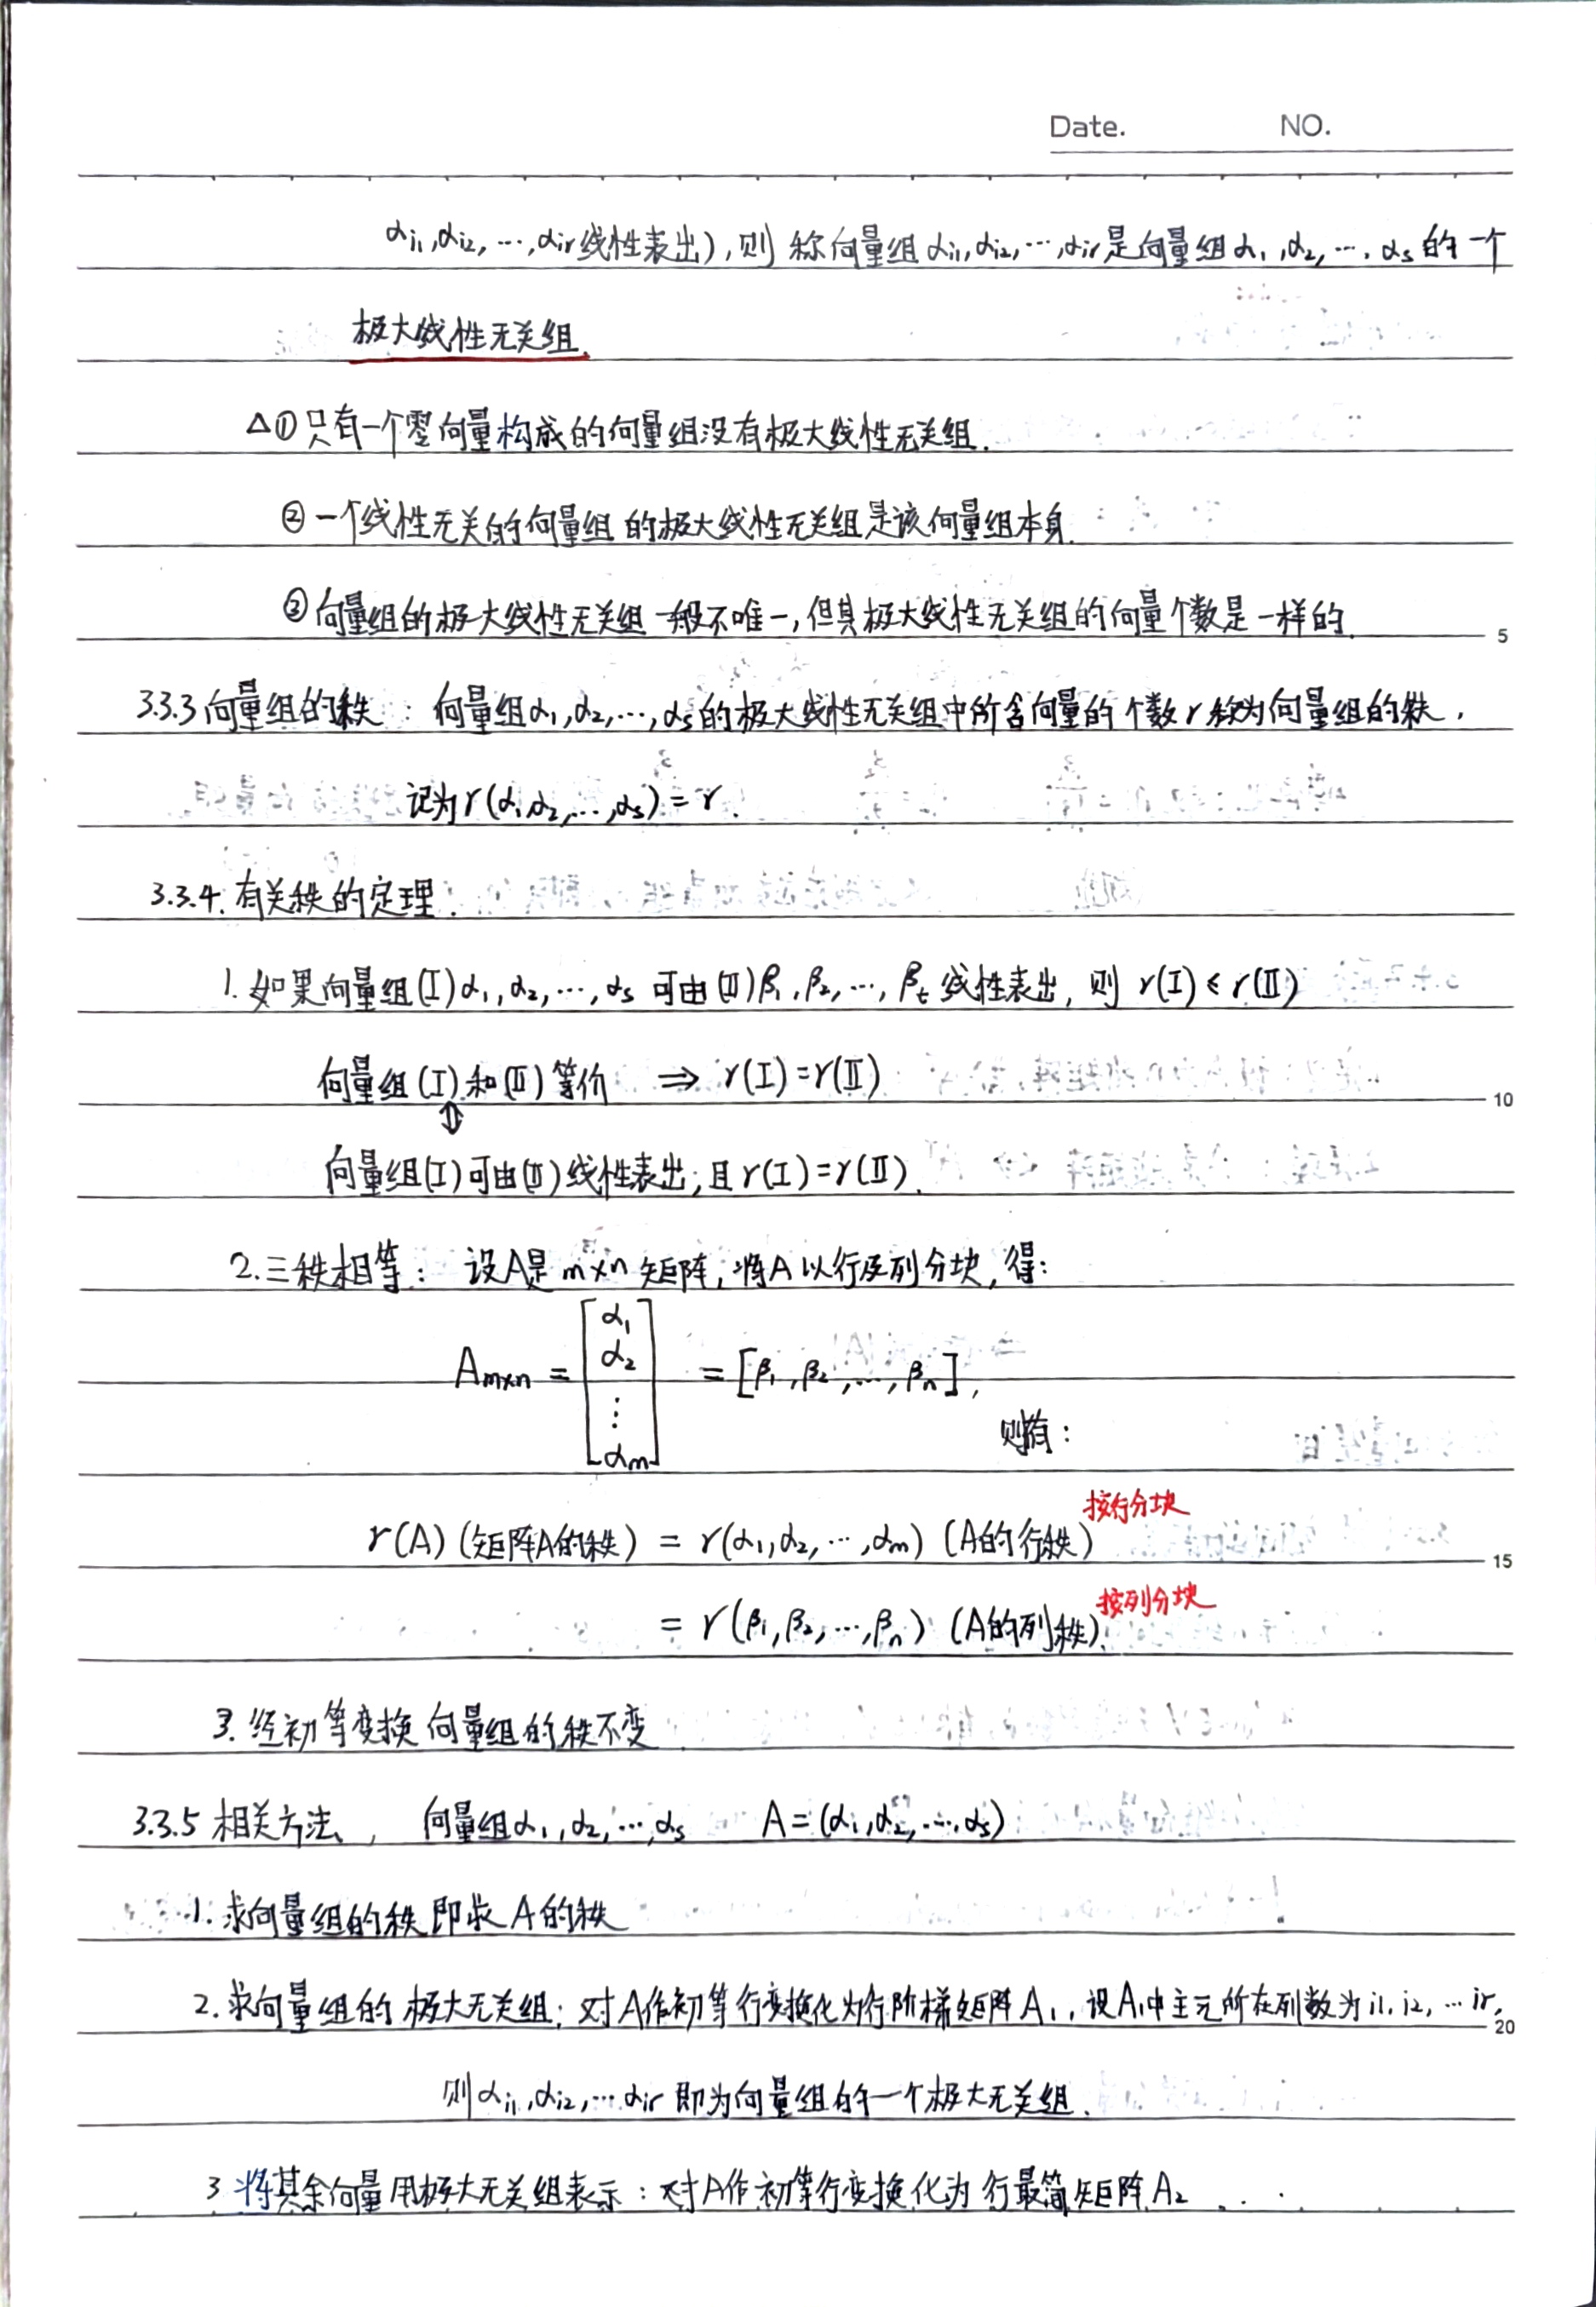 Date. NO.
αi1,αi2,…,αir线性表出),则称向量组αi1,αi2,…,αir是向量组α1,α2,…,αs的一个
极大线性无关组.
△①只有一个零向量构成的向量组没有极大线性无关组.
②一个线性无关的向量组的极大线性无关组是该向量组本身.
③向量组的极大线性无关组一般不唯一,但其极大线性无关组的向量个数是一样的.
5
3.3.3向量组的秩: 向量组α1,α2,…,αs的极大线性无关组中所含向量的个数r称为向量组的秩,
记为r(α1,α2,…,αs)=r.
3.3.4.有关秩的定理.
1.如果向量组(I)α1,α2,…,αs可由(II)β1,β2,…,βt线性表出,则 r(I)≤r(II)
向量组(I)和(II)等价 ⇒ r(I)=r(II)
10
⇕
向量组(I)可由(II)线性表出,且r(I)=r(II).
2.三秩相等: 设A是m×n矩阵,将A以行及列分块,得:
Am×n = [α1 α2 ⋮ αm] = [β1,β2,…,βn],
则有:
按行分块
r(A)(矩阵A的秩) = r(α1,α2,…,αm) (A的行秩)
15
按列分块
= r(β1,β2,…,βn) (A的列秩).
3.经初等变换向量组的秩不变
3.3.5相关方法, 向量组α1,α2,…,αs A=(α1,α2,…,αs)
1.求向量组的秩即求A的秩
2.求向量组的极大无关组:对A作初等行变换化为行阶梯矩阵A1,设A1中主元所在列数为i1,i2,…ir,
20
则αi1,αi2,…αir即为向量组的一个极大无关组.
3.将其余向量用极大无关组表示:对A作初等行变换化为行最简矩阵A2